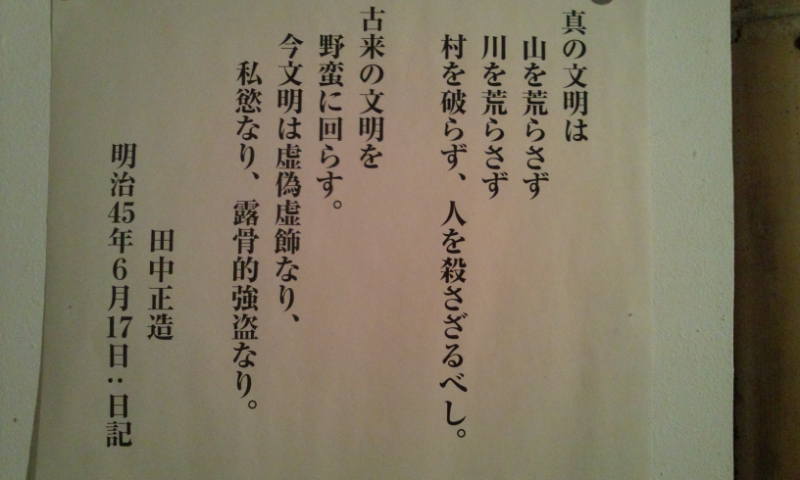 真の文明は
山を荒らさず
川を荒らさず
村を破らず、人を殺さざるべし。
古来の文明を
野蛮に回らす。
今文明は虚偽虚飾なり、
私慾なり、露骨的強盗なり。
田中正造
明治45年6月17日:日記